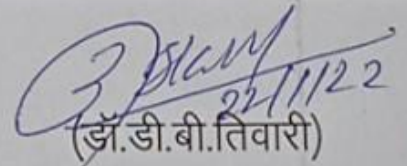 22/11/22
(डॉ.डी.बी.तिवारी)